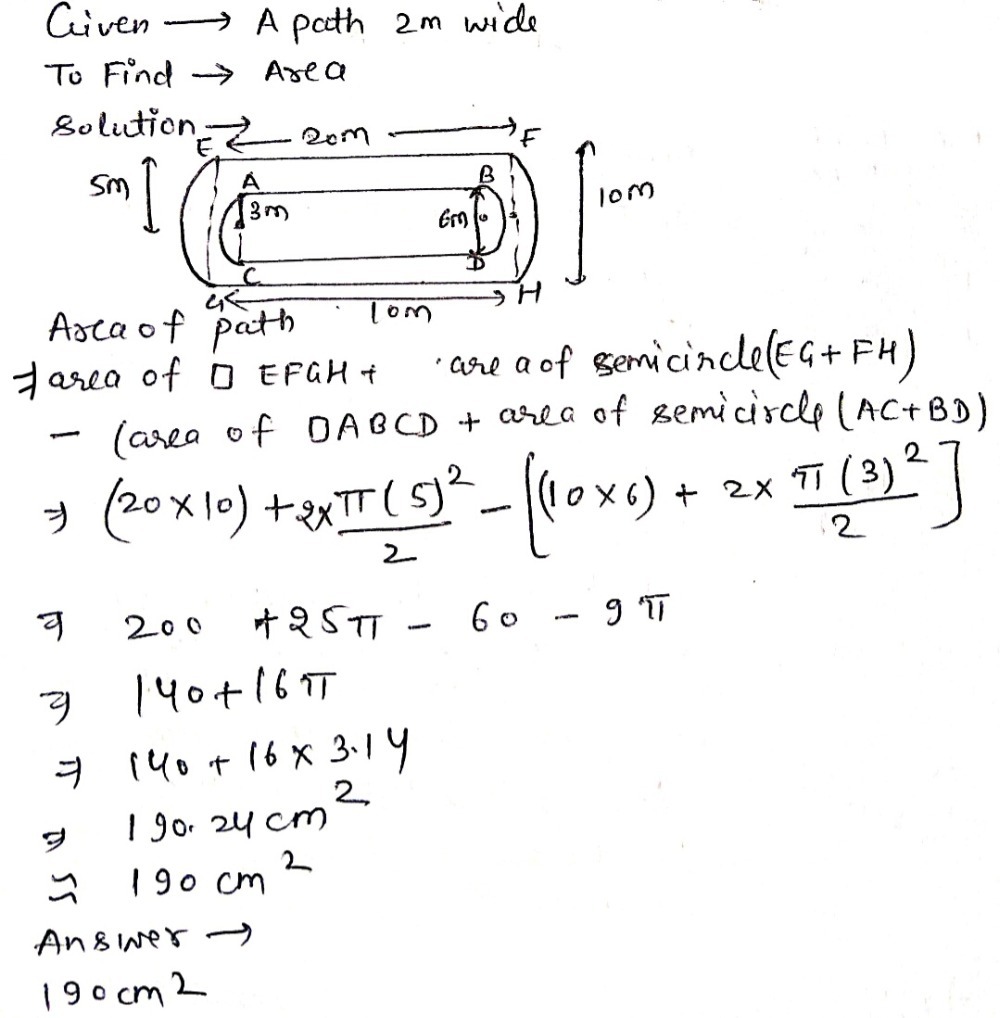 Given → A path 2m wide
To Find → Area
Solution →
E ← 20m → F
5m
A B
3m 6m
10m
C D
G ← 10m → H
Area of path
⇒ area of □ EFGH + area of semicircle (EG + FH)
- (area of □ABCD + area of semicircle (AC+BD)
⇒ (20×10) + 2×π(5)²/2 - [(10×6) + 2× π(3)²/2]
⇒ 200 + 25π - 60 - 9π
⇒ 140+16π
⇒ 140 + 16 × 3.14
⇒ 190.24 cm²
≈ 190 cm²
Answer →
190 cm2